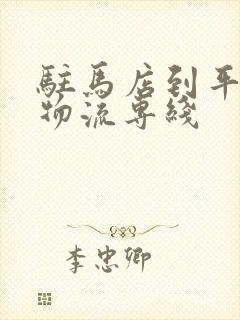 駐馬店到平
物流専綫
李忠卿